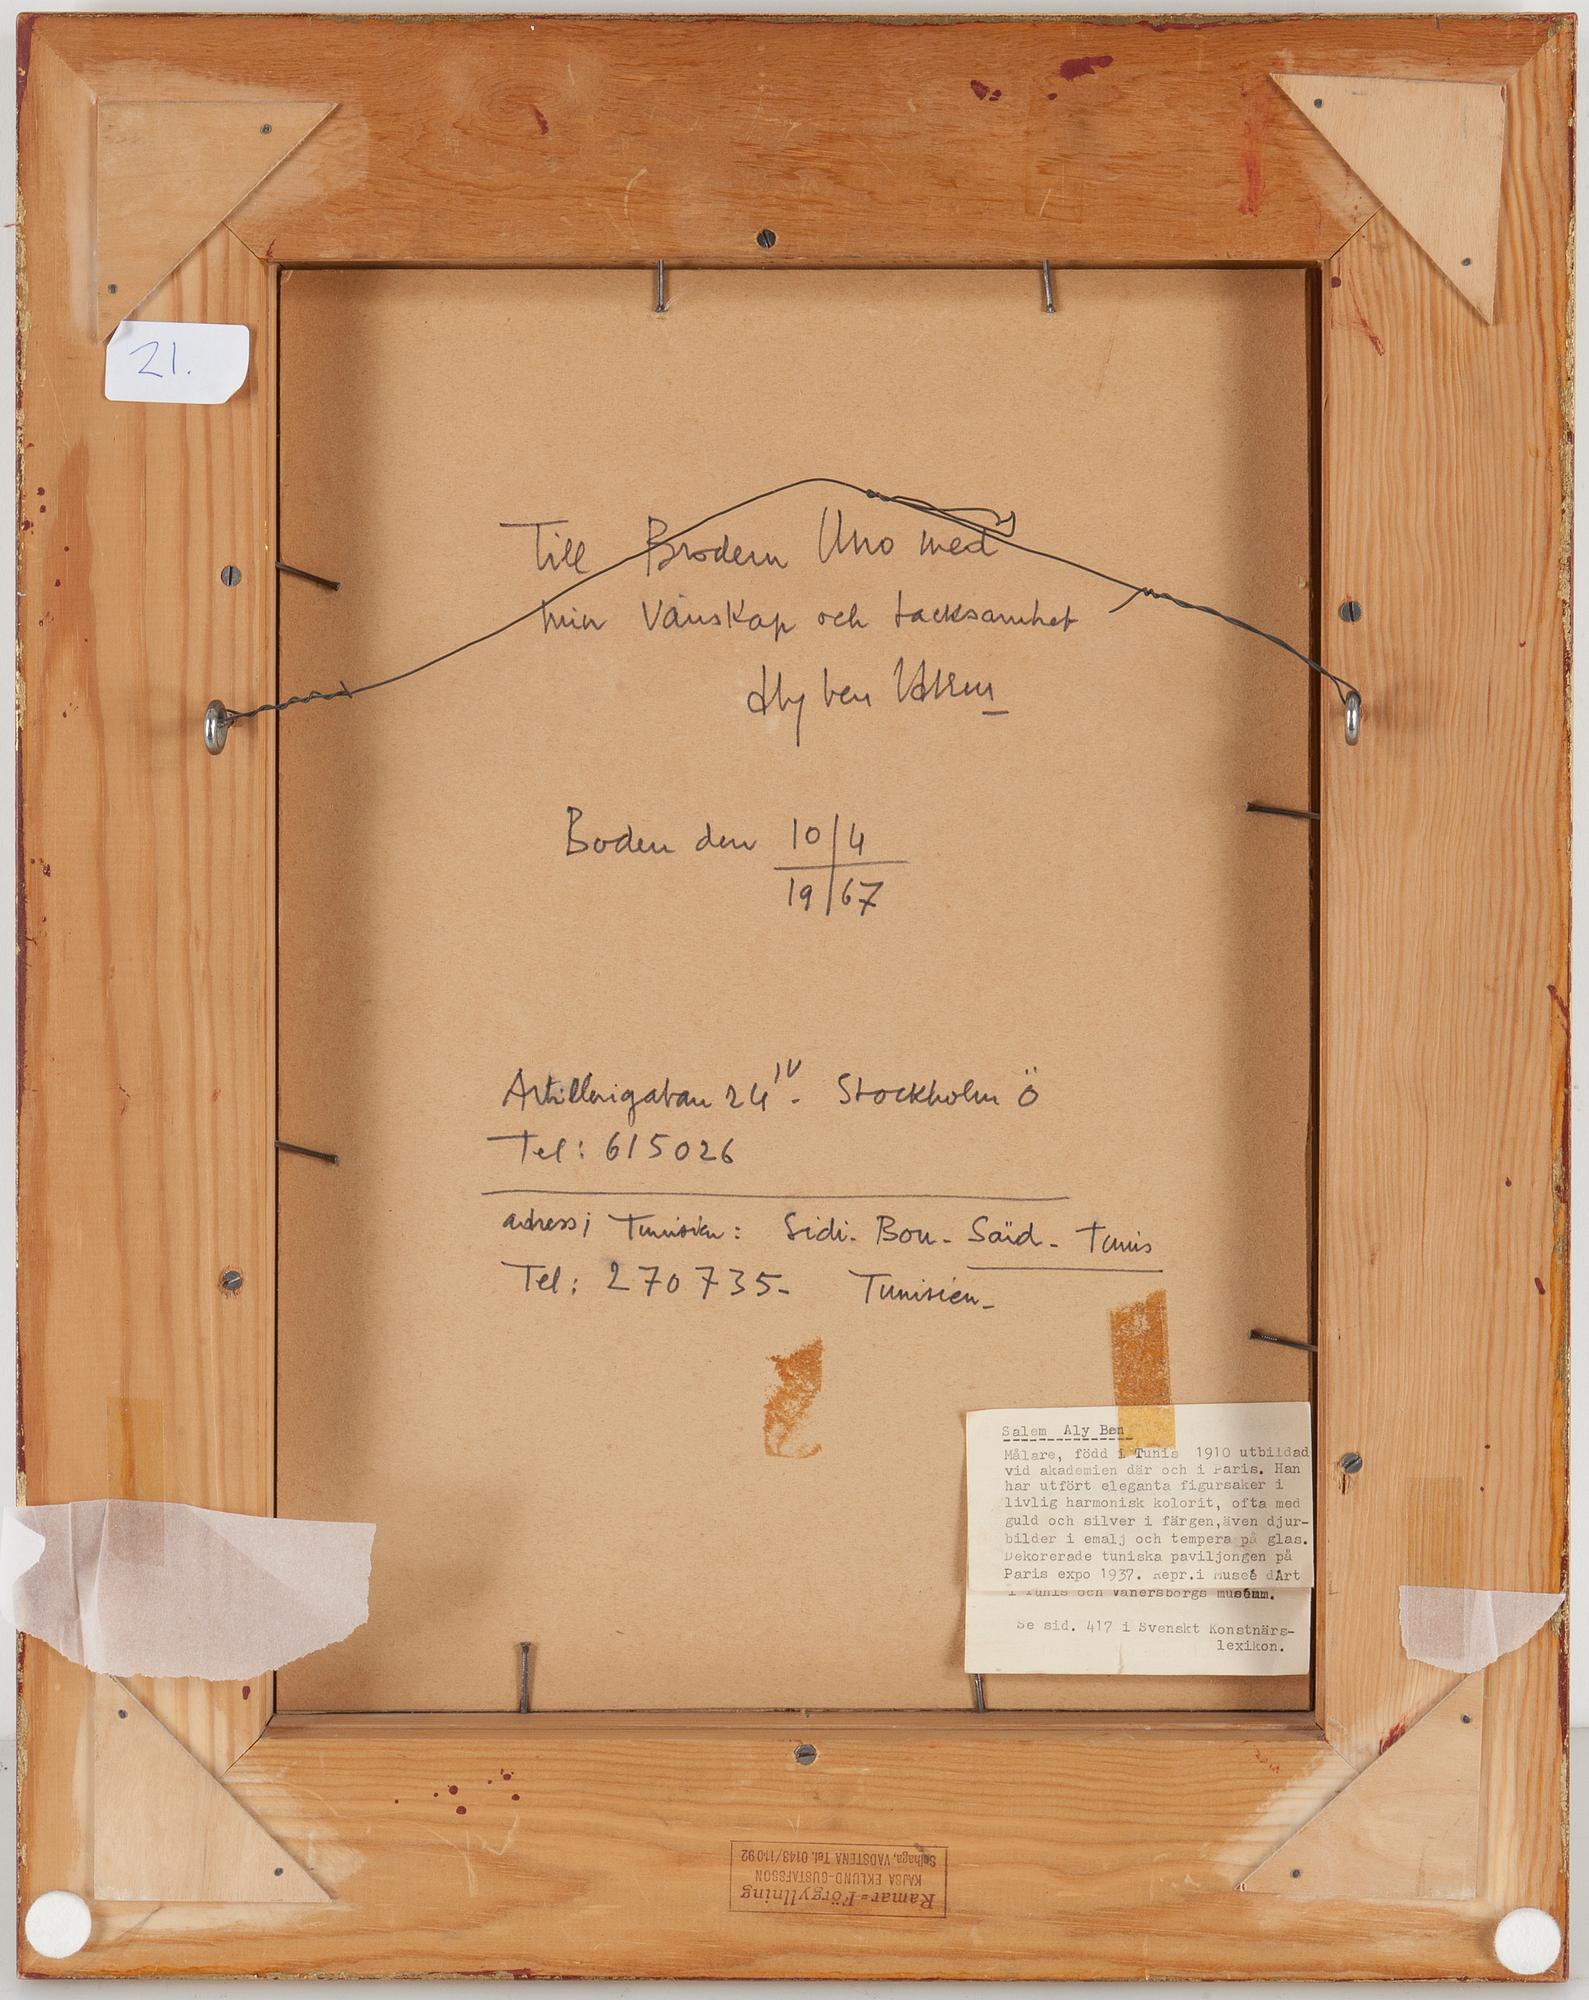 21.
Till Brodern Uno med
min Vänskap och tacksamhet
Aly ben
Boden den 10/4
19/67
Artillerigatan 24 IV - Stockholm Ö
Tel: 615026
adress i Tunisien: Sidi- Bou- Saïd- Tunis
Tel: 270735- Tunisien-
Salem Aly Ben
Målare, född i Tunis 1910 utbildad
vid akademien där och i Paris. Han
har utfört eleganta figursaker i
livlig harmonisk kolorit, ofta med
guld och silver i färgen,även djur-
bilder i emalj och tempera på glas.
Dekorerade tuniska paviljongen på
Paris expo 1937. Repr.i Museé dArt
i Tunis och Vänersborgs muséum.
Se sid. 417 i Svenskt Konstnärs-
lexikon.
Ramar=Förgyllning
KAJSA EKLUND-GUSTAFSSON
Solhaga, VADSTENA Tel. 0143/110 92